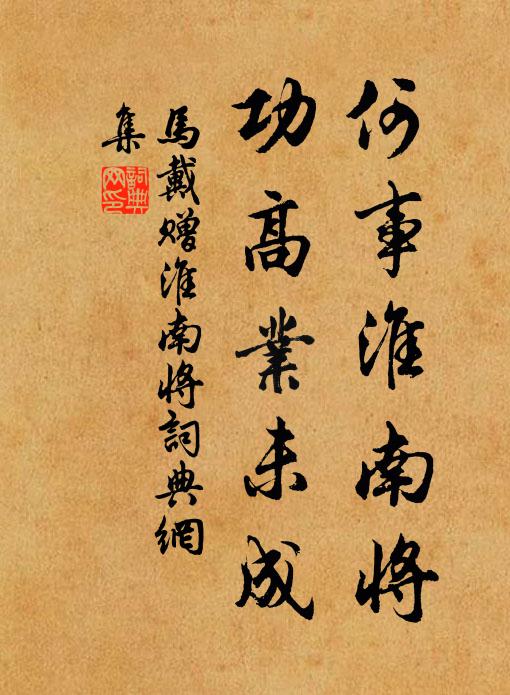 何事淮南将
功高業未成
馬戴贈淮南将詞典網
集
詞典
网印